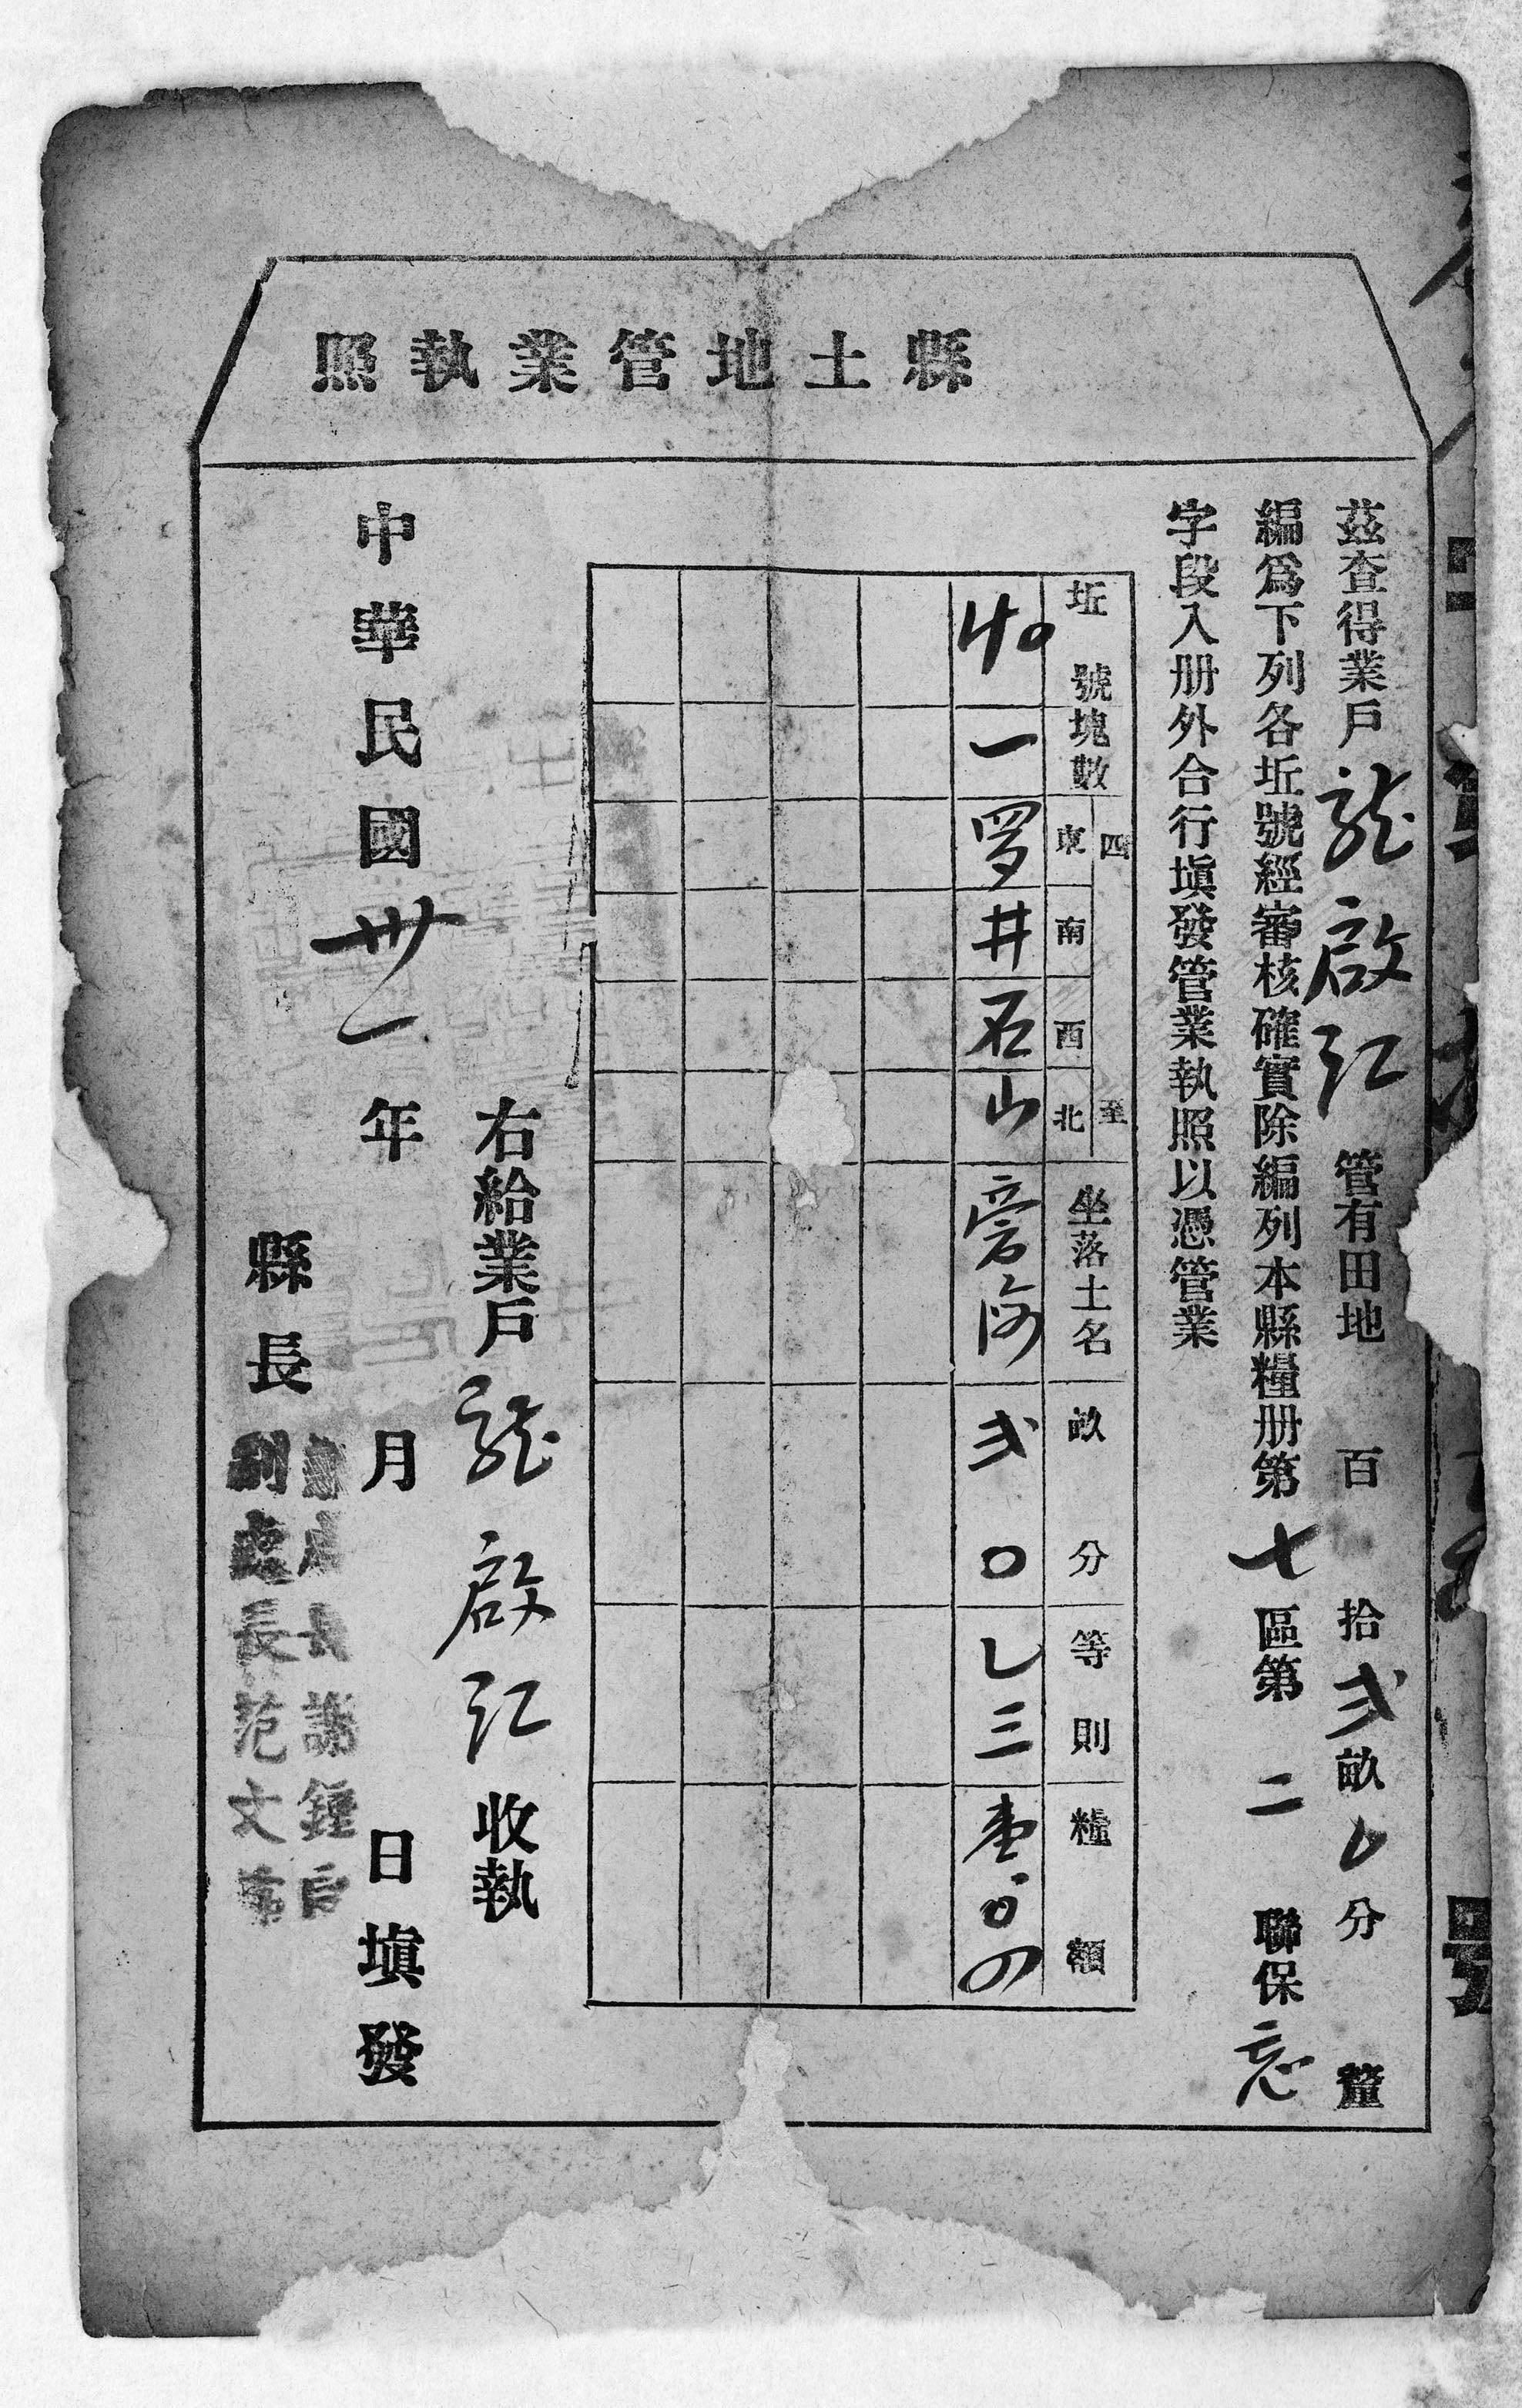 縣土地管業執照
茲查得業戶龍啟江管有田地 百 拾弍畝 分 釐
編爲下列各坵號經審核確實除編列本縣糧册第七區第二聯保
字段入册外合行塡發管業執照以憑管業
坵號 塊數 四至 東 南 西 北 坐落土名 畝 分 等則 糧額
一 罗 井 石 山 弍 〇 三
右給業戶龍啟江收執
中華民國卅一年 月 日塡發
縣長
副處長范文
號